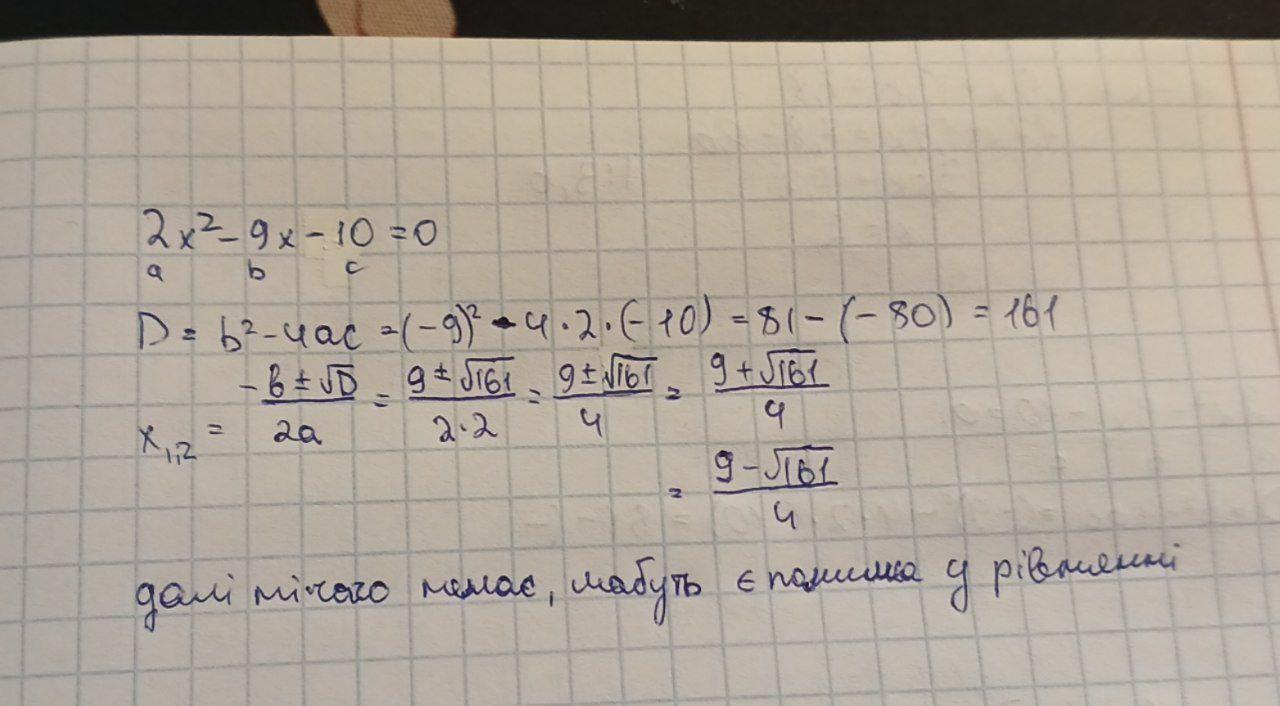 2x² - 9x - 10 = 0
a b c
D = b² - 4ac = (-9)² - 4·2·(-10) = 81 - (-80) = 161
x₁,₂ = (-b ± √D)/(2a) = (9 ± √161)/(2·2) = (9 ± √161)/4 = (9 + √161)/4
= (9 - √161)/4
далі нічого немає, мабуть є помилка у рівнянні